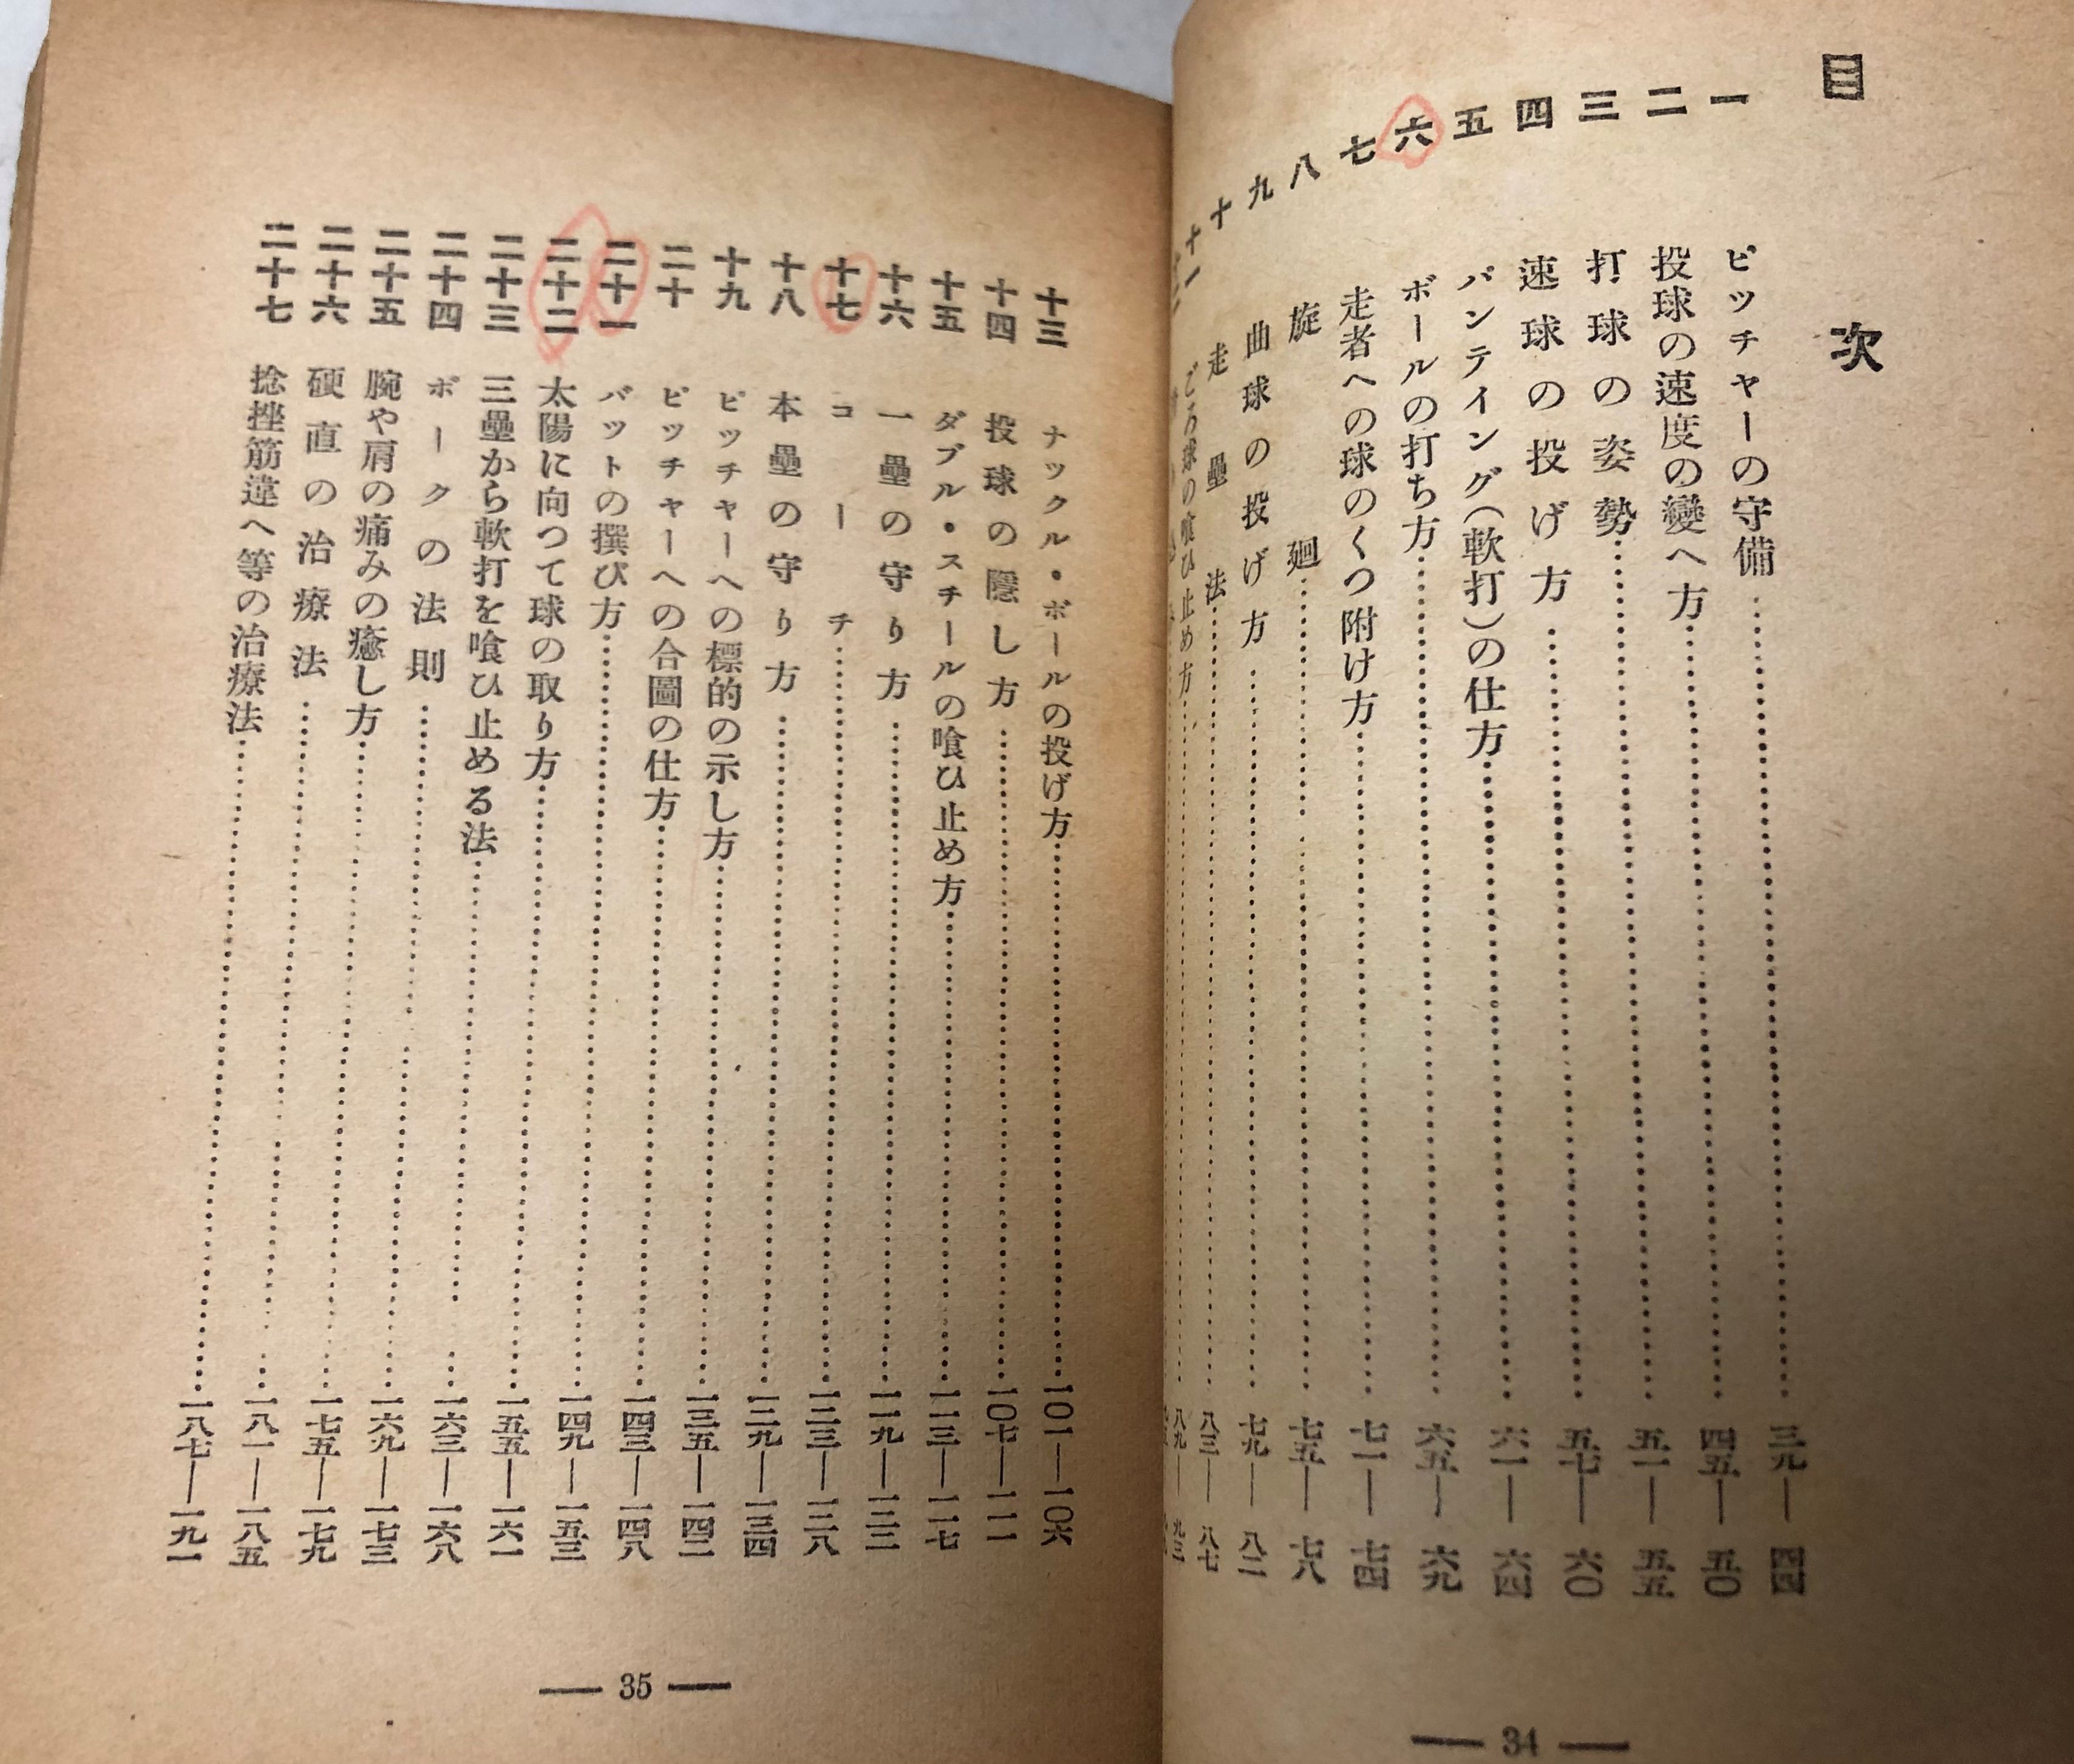 目次
一 ピッチャーの守備 三九―四四
二 投球の速度の變へ方 四五―五〇
三 打球の姿勢 五一―五五
四 速球の投げ方 五七―六〇
五 バンテイング(軟打)の仕方 六一―六四
六 ボールの打ち方 六五―六九
七 走者への球のくつ附け方 七一―七四
八 旋廻 七五―七八
九 曲球の投げ方 七九―八二
十 走壘法 八三―八七
十一 ごろ球の喰ひ止め方 八九―九三
34
十三 ナックル・ボールの投げ方 一〇一―一〇六
十四 投球の隱し方 一〇七―一一一
十五 ダブル・スチールの喰ひ止め方 一一三―一一七
十六 一壘の守り方 一一九―一二二
十七 コーチ 一二三―一二八
十八 本壘の守り方 一二九―一三四
十九 ピッチャーへの標的の示し方 一三五―一四二
二十 ピッチャーへの合圖の仕方 一四三―一四八
二十一 バットの撰び方 一四九―一五三
二十二 太陽に向つて球の取り方 一五五―一六一
二十三 三壘から軟打を喰ひ止める法 一六三―一六八
二十四 ボークの法則 一六九―一七三
二十五 腕や肩の痛みの癒し方 一七五―一七九
二十六 硬直の治療法 一八一―一八五
二十七 捻挫筋違へ等の治療法 一八七―一九一
35